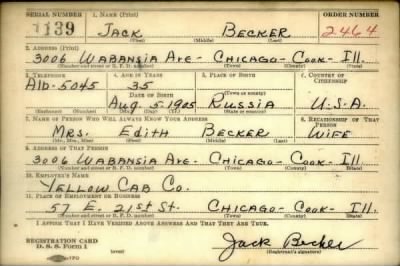 SERIAL NUMBER 1. NAME (Print) ORDER NUMBER
1139 JACK BECKER 2464
(First) (Middle) (Last)
2. ADDRESS (Print)
3006 WABANSIA AVE - CHICAGO - COOK - ILL.
(Number and street or R. F. D. number) (Town) (County) (State)
3. TELEPHONE 4. AGE IN YEARS 5. PLACE OF BIRTH 6. COUNTRY OF CITIZENSHIP
ALB-5045 35
(Town or county)
AUG. 5-1905 RUSSIA U.S.A.
(Exchange) (Number) (Mo.) (Day) (Yr.) (State or country)
7. NAME OF PERSON WHO WILL ALWAYS KNOW YOUR ADDRESS 8. RELATIONSHIP OF THAT PERSON
MRS. EDITH BECKER WIFE
(Mr., Mrs., Miss) (First) (Middle) (Last)
9. ADDRESS OF THAT PERSON
3006 WABANSIA AVE - CHICAGO - COOK - ILL.
(Number and street or R. F. D. number) (Town) (County) (State)
10. EMPLOYER'S NAME
YELLOW CAB CO.
11. PLACE OF EMPLOYMENT OR BUSINESS
57 E. 21ST ST. CHICAGO - COOK - ILL.
(Number and street or R. F. D. number) (Town) (County) (State)
I AFFIRM THAT I HAVE VERIFIED ABOVE ANSWERS AND THAT THEY ARE TRUE.
REGISTRATION CARD
D. S. S. Form 1 Jack Becker
(over) (Registrant's signature)